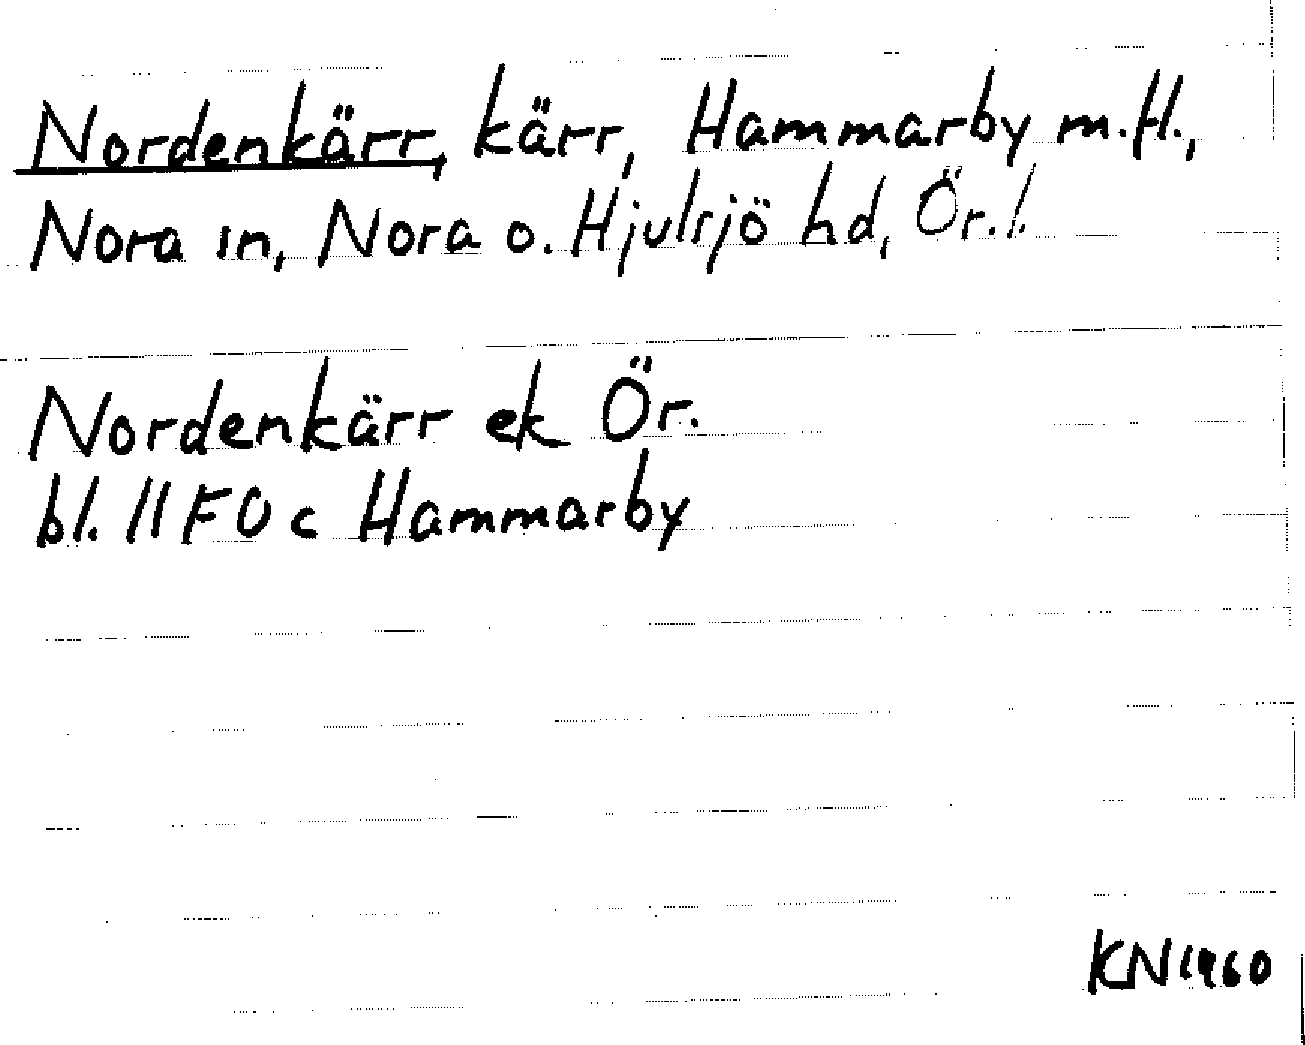 Nordenkärr, kärr, Hammarby m.fl.,
Nora sn, Nora o. Hjulsjö hd, Ör. l.
Nordenkärr ek Ör.
bl. 11 F 0 c Hammarby
KN 1960